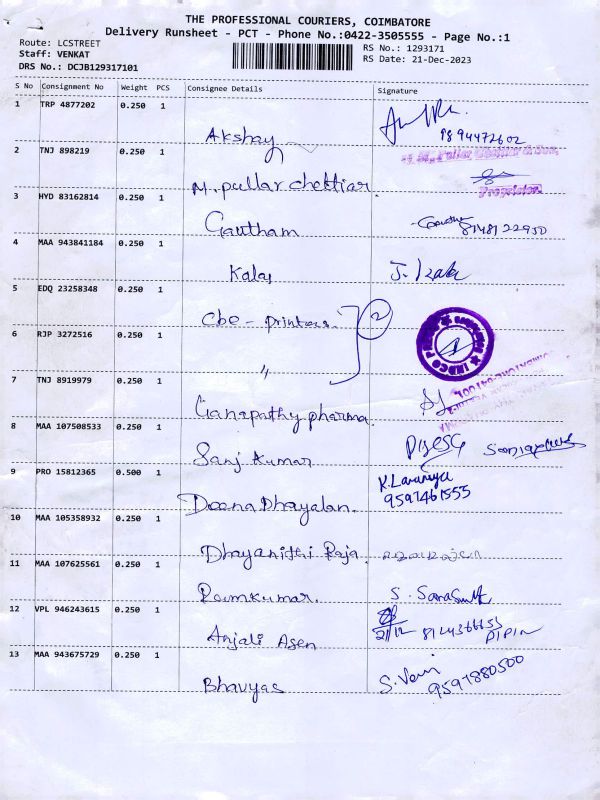 THE PROFESSIONAL COURIERS, COIMBATORE
Delivery Runsheet - PCT - Phone No.:0422-3505555 - Page No.:1
Route: LCSTREET
RS No.: 1293171
Staff: VENKAT
RS Date: 21-Dec-2023
DRS No.: DCJB129317101
S No Consignment No Weight PCS Consignee Details Signature
1 TRP 4877202 0.250 1
Akshay
2 TNJ 898219 0.250 1
M. pullar chettiar
Proprietor.
3 HYD 83162814 0.250 1
Gautham 8148122950
4 MAA 943841184 0.250 1
Kalai
5 EDQ 23258348 0.250 1
Cbe - printers. 2
6 RJP 3272516 0.250 1
"
7 TNJ 8919979 0.250 1
Ganapathy pharma.
8 MAA 107508533 0.250 1
Sanj Kumar
9 PRO 15812365 0.500 1
K. Lavanya
9597461555
Deena Dhayalan.
10 MAA 105358932 0.250 1
Dhayanithi Raja.
11 MAA 107625561 0.250 1
Ramkumar.
12 VPL 946243615 0.250 1
Anjali Asen 21/12
13 MAA 943675729 0.250 1
Bhavyas S. Veni
9597880500